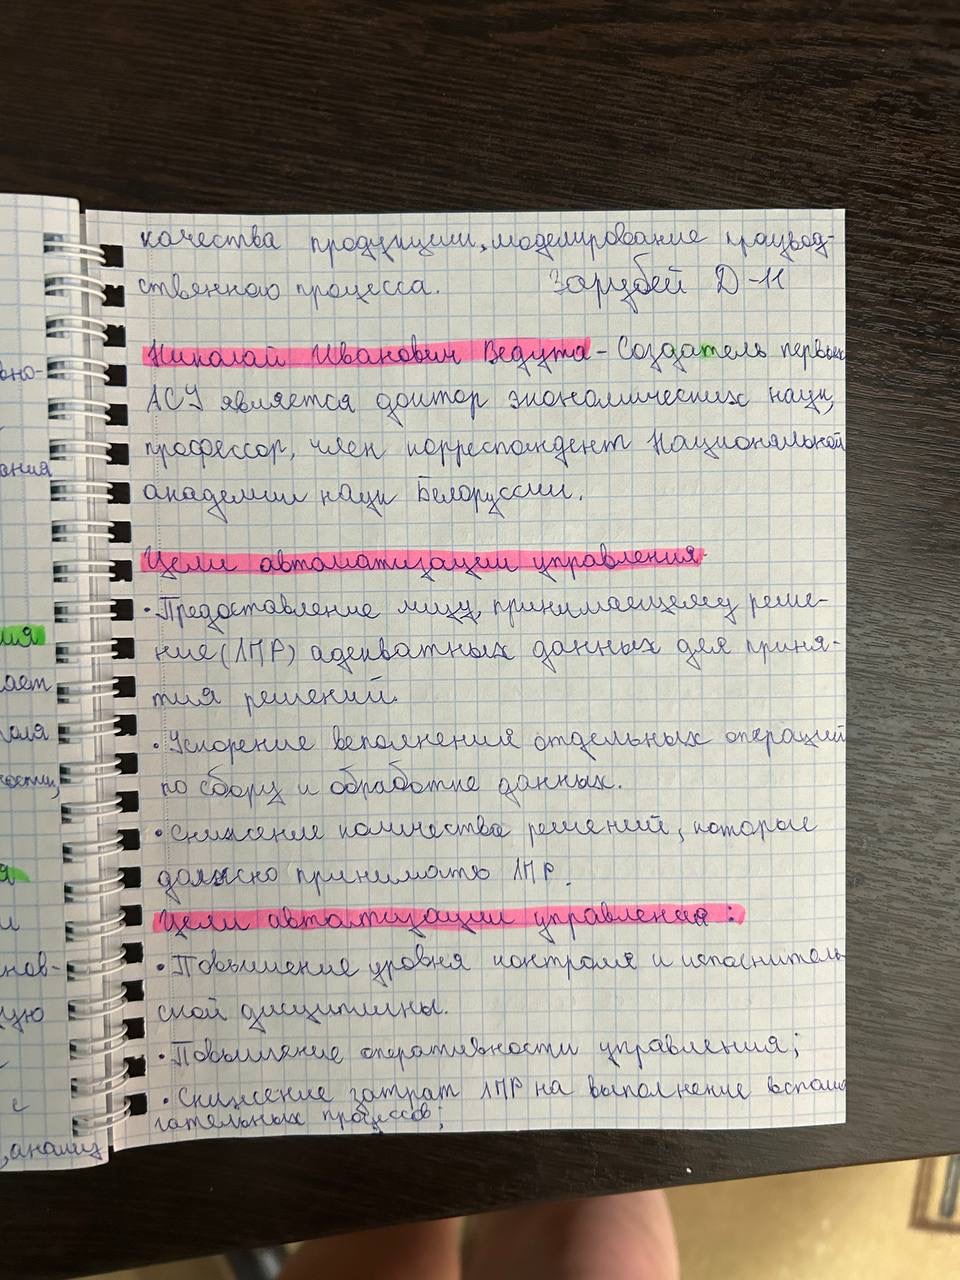 качества продукции, моделирование производ-
ственного процесса. Зарубей Д-11
Николай Иванович Ведута - Создатель первых
АСУ является доктор экономических наук,
профессор, член корреспондент Национальной
академии наук Белоруссии.
Цели автоматизации управления
• Предоставление лицу, принимаещему реше-
ние (ЛПР) адекватных данных для приня-
тия решений.
• Ускорение веполнения отдельных операций
по сбору и обработке данных.
• Снижение количества решений, которые
должно принимать ЛПР.
Цели автоматизации управления:
• Повышение уровня контроля и исполнитель
ской дисциплины.
• Повышение оперативности управления;
• Снижение затрат ЛПР на выполнение вспомо
гательных процессов;
вно-
ания
ия
ает
оля
ности,
я
и
нов-
ую
с
, анализ